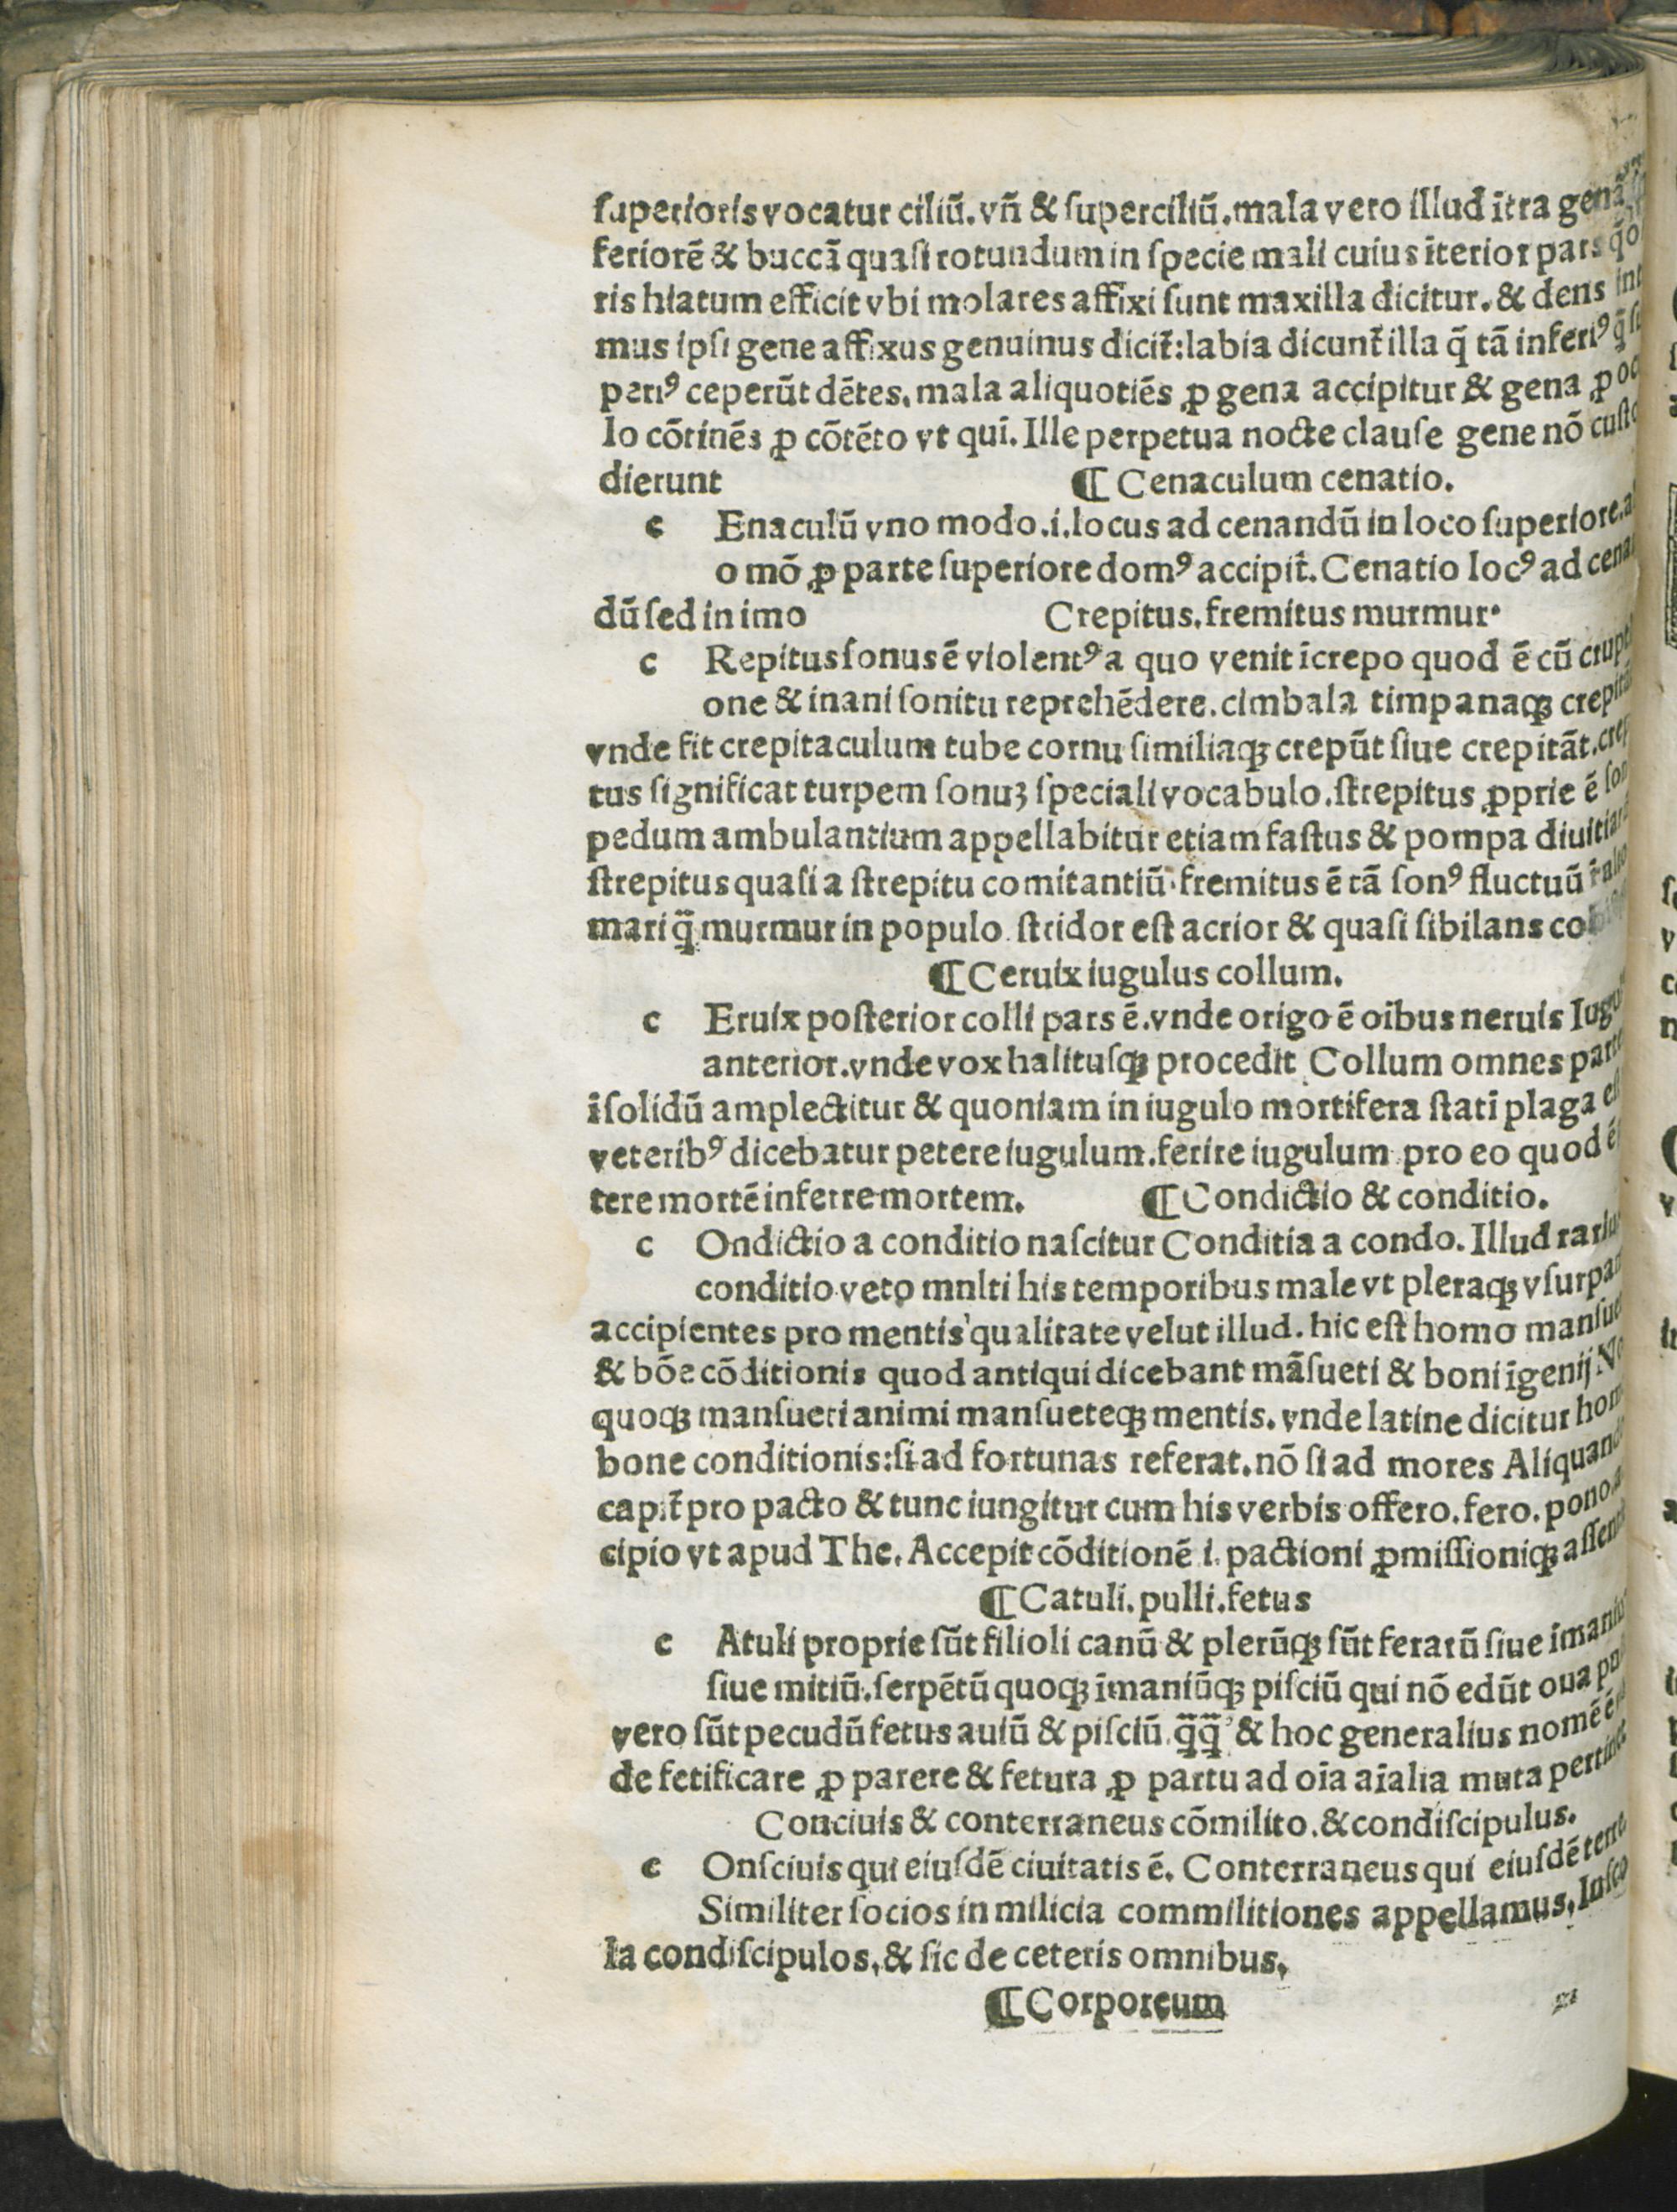 ſuperioris vocatur ciliū. vñ & ſuperciliū. mala vero illud ītra genā
feriorē & buccā quaſi rotundum in ſpecie mali cuius īterior pars
ris hiatum efficit vbi molares affixi ſunt maxilla dicitur. & dens
mus ipſi gene affixus genuinus dicit̄: labia dicunt̄ illa q̄ tā inferiꝰ
periꝰ ceperūt dētes. mala aliquotiēs ꝓ gena accipitur & gena ꝓ
lo cōtinēs ꝓ cōtēto vt quī. Ille perpetua nocte clauſe gene nō
dierunt ¶ Cenaculum cenatio.
c Enaculū vno modo .i. locus ad cenandū in loco ſuperiore.
o mō ꝓ parte ſuperiore domꝰ accipit̄. Cenatio locꝰ ad
dū ſed in imo Crepitus. fremitus murmur.
c Repitus ſonus ē violentꝰ a quo venit īcrepo quod ē cū
one & inani ſonitu reprehēdere. cimbala timpanaqꝫ
vnde fit crepitaculum tube cornu ſimiliaqꝫ crepūt ſiue crepitāt.
tus ſignificat turpem ſonuꝫ ſpeciali vocabulo. ſtrepitus ꝓprie ē
pedum ambulantium appellabitur etiam faſtus & pompa
ſtrepitus quaſi a ſtrepitu comitantiū. fremitus ē tā ſonꝰ fluctuū
mari q̄ murmur in populo. ſtridor eſt acrior & quaſi ſibilans
¶ Ceruix iugulus collum.
c Eruix poſterior colli pars ē. vnde origo ē oībus neruis
anterior. vnde vox halituſqꝫ procedit Collum omnes
īſolidū amplectitur & quoniam in iugulo mortifera ſtatī plaga
veteribꝰ dicebatur petere iugulum. ferire iugulum pro eo quod
tere mortē inferre mortem. ¶ Condictio & conditio.
c Ondictio a conditio naſcitur Conditia a condo. Illud
conditio veto mnlti his temporibus male vt pleraqꝫ
accipientes pro mentis qualitate velut illud. hic eſt homo
& bōe cōditionis quod antiqui dicebant māſueti & boni īgenij
quoqꝫ manſueti animi manſueteqꝫ mentis. vnde latine dicitur
bone conditionis: ſi ad fortunas referat. nō ſi ad mores
capit̄ pro pacto & tunc iungitur cum his verbis offero. fero.
cipio vt apud The. Accepit cōditionē .i. pactioni ꝓmiſſioniqꝫ
¶ Catuli. pulli. fetus
c Atuli proprie ſūt filioli canū & plerūqꝫ ſūt ferarū ſiue
ſiue mitiū. ſerpētū quoqꝫ īmaniūqꝫ piſciū qui nō edūt oua
vero ſūt pecudū fetus auiū & piſciū. q̄q̄ & hoc generalius nomē
de fetificare ꝓ parere & fetura ꝓ partu ad oīa aīalia muta
Conciuis & conterraneus cōmilito. & condiſcipulus.
c Onſciuis qui eiuſdē ciuitatis ē. Conterraneus qui eiuſdē
Similiter ſocios in milicia commilitiones appellamus.
la condiſcipulos, & ſic de ceteris omnibus.
¶ Corporeum